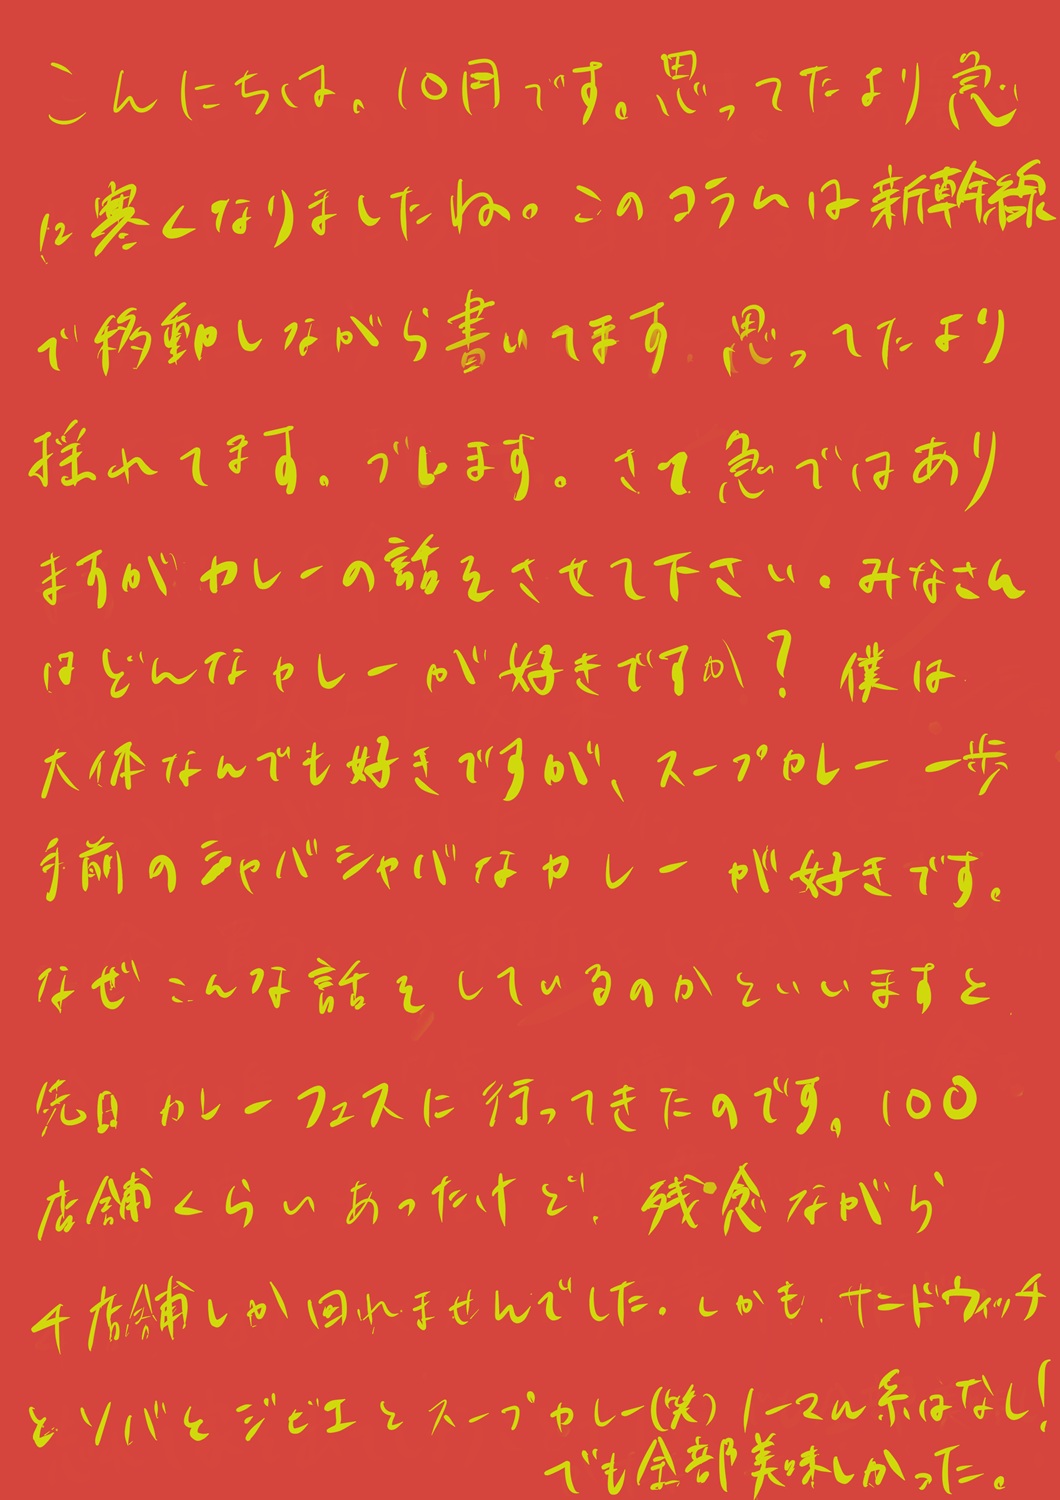 こんにちは。10月です。思ってたより急
に寒くなりましたね。このコラムは新幹線
で移動しながら書いてます。思ってたより
揺れてます。ブレます。さて急ではあり
ますがカレーの話をさせて下さい。みなさん
はどんなカレーが好きですか?僕は
大体なんでも好きですが、スープカレー一歩
手前のシャバシャバなカレーが好きです。
なぜこんな話をしているのかといいますと
先日カレーフェスに行ってきたのです。100
店舗くらいあったけど、残念ながら
4店舗しか回れませんでした。しかも、サンドウィッチ
とソバとジビエとスープカレー(笑)ノーマル系はなし!
でも全部美味しかった。